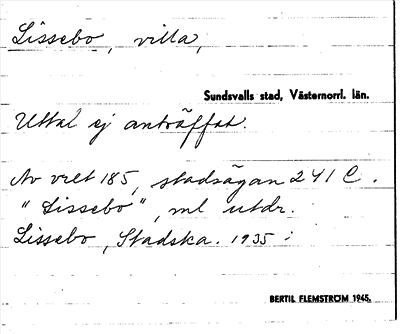 Lissebo, villa,
Sundsvalls stad, Västernorrl. län.
Uttal ej anträffat.
Av vret 185, stadsägan 241 C.
"Lissebo", ml utdr.
Lissebo, Stadska. 1935 :
BERTIL FLEMSTRÖM 1945.